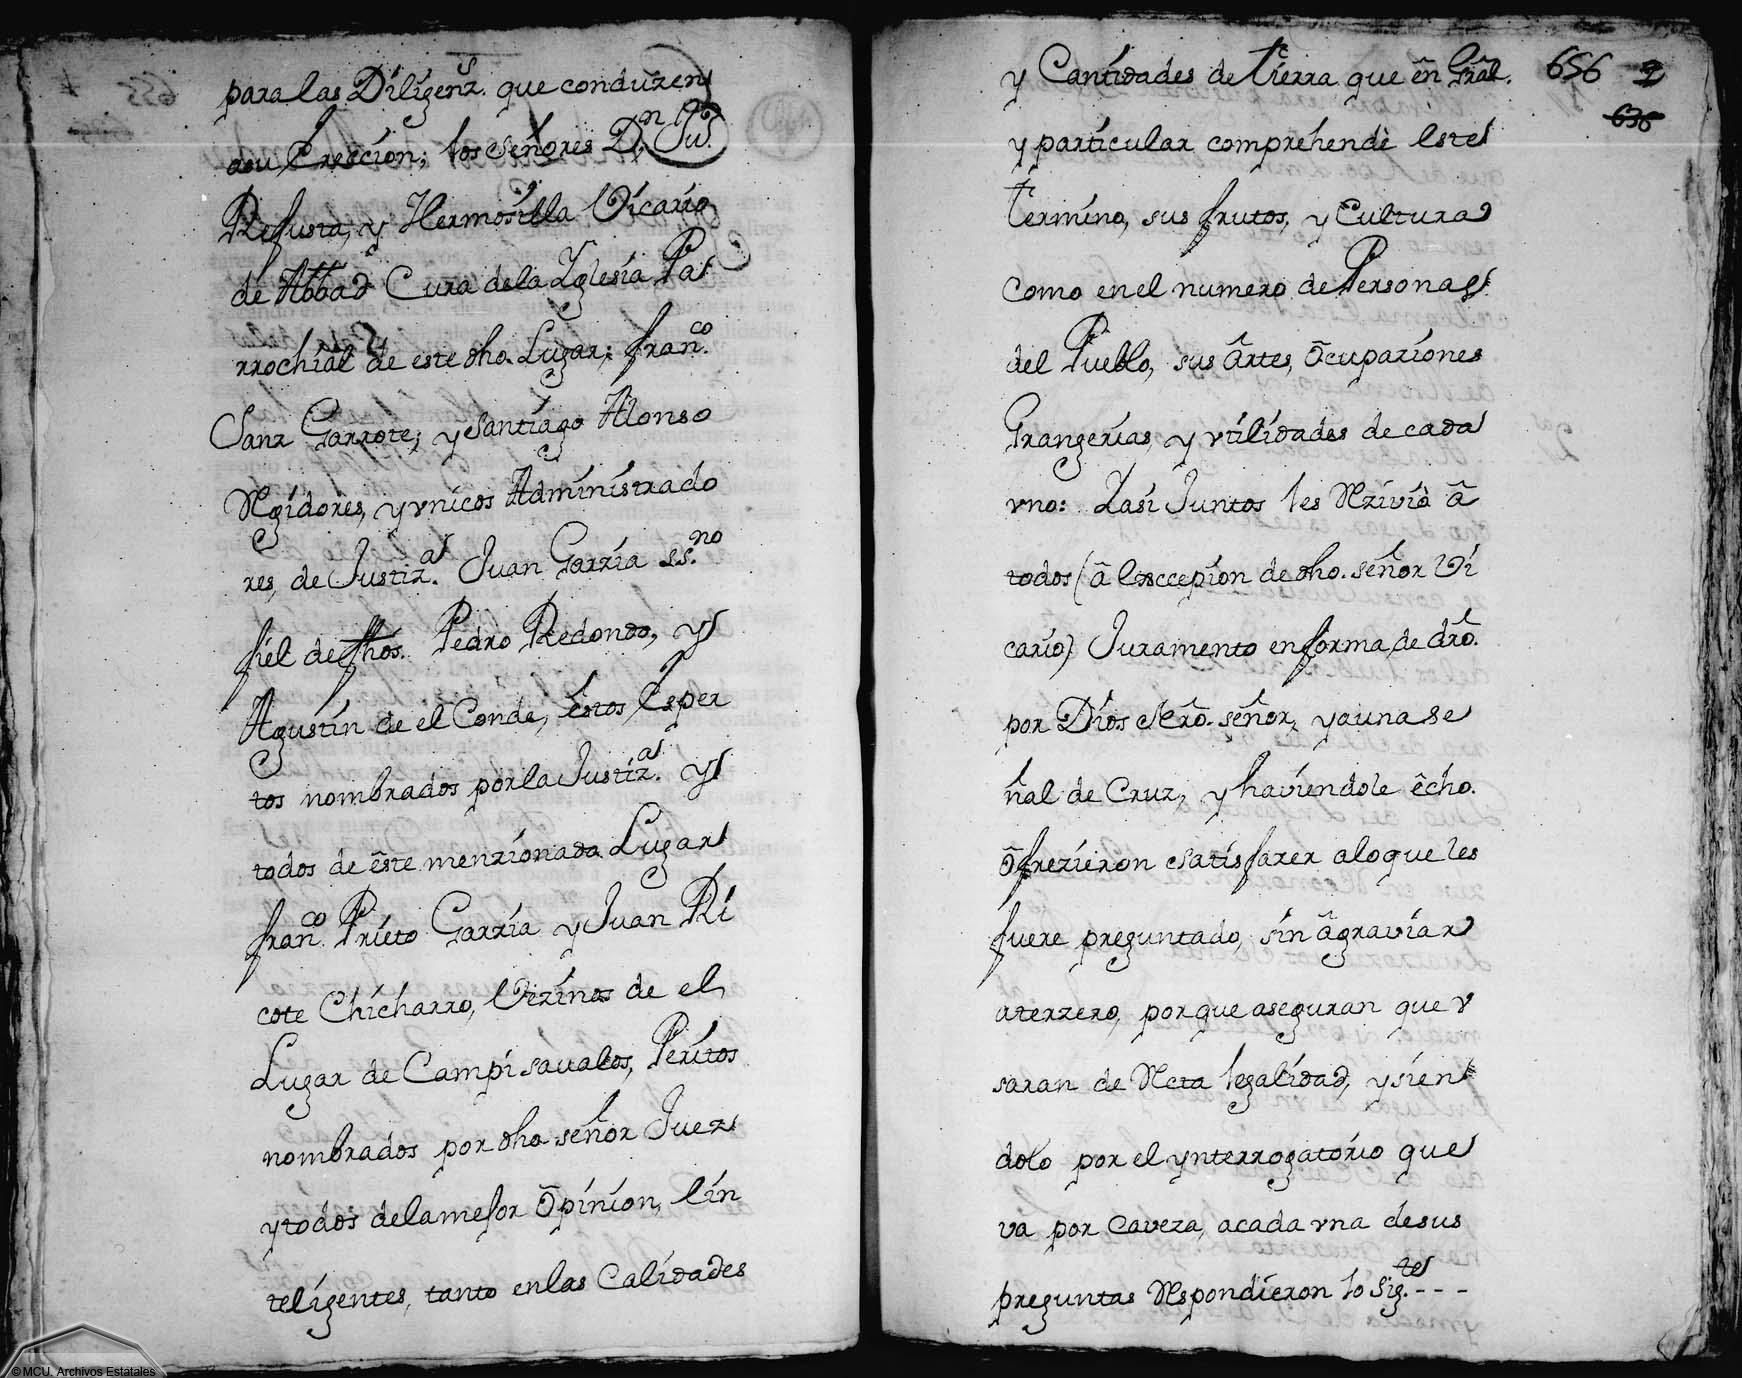 para las Diligenz.s que conduzen
asu Ereccion; los señores D.n Ju.º
Refusta, y Hermosilla Vicario
de Abbad Cura dela Yglesia Pa
rrochial de este dho. Lugar; fran.co
Sanz Garrote; y Santiago Alonso
Regidores, y vnicos Administrado
res, de Justiz.a Juan Garzia ss.no
fiel de fhos. Pedro Redondo, y
Agustin de el Conde, êstos Esper
tos nombrados por la Justiz.a y
todos de êste menzionado Lugar
fran.co Prieto Garzia y Juan Ri
cote Chicharro, Vezinos de el
Lugar de Campisavalos, Peritos
nombrados por dho señor Juez
y todos dela mejor Ôpinion, e in
teligentes, tanto en las Calidades
y Cantidades de tierra que ên Grâl. 656 2
636
y particular comprehende este
termino, sus frutos, y Cultura
como en el numero de Personas
del Pueblo, sus ârtes, Ôcupaziones
Grangerias, y vtilidades de cada
vno: Yasi Juntos les Rzivió â
todos (â Excepcion de dho. señor Vi
cario) Juramento en forma de drô.
por Dios Nrô. señor, y a una se
ñal de Cruz, y haviendole êcho.
Ôfrezieron satisfazer alo que les
fuere preguntado, sin âgraviar
aterzero, porque aseguran que v
saran de Rcta legalidad, y sien
dolo por el ynterrogatorio que
va por caveza, acada vna desus
preguntas Respondieron lo Sig.te - - -
© MCU. Archivos Estatales